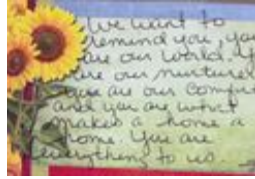 We want to
remind you, you
are our world. Y
are our nurturer
you are our comfor
and you are what
makes a home a
home You are
everything to us.